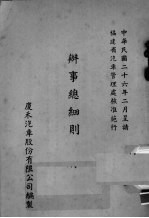 中華民國二十六年二月呈請
福建省汽車管理處核准施行
辦事總細則
廈禾汽車股份有限公司編製